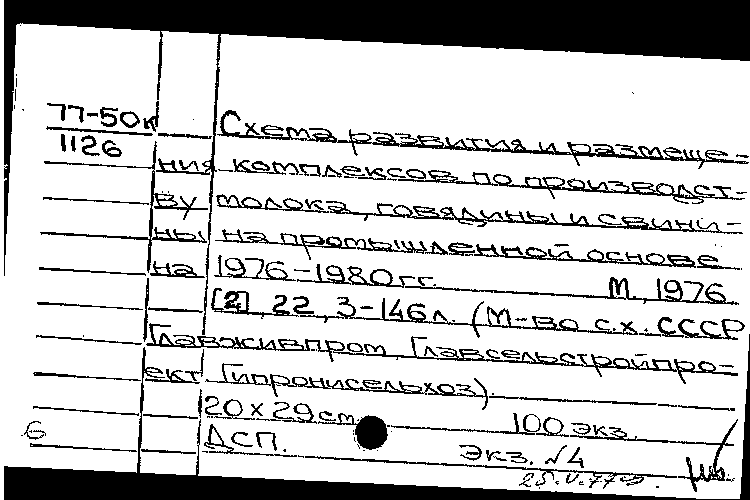 77-50к Схема развития и размеще-
1126
ния комплексов по производст-
ву молока, говядины и свини-
ны на промышленной основе
на 1976-1980 гг. М., 1976.
[2], 22, 3-146 л. (М-во с.х. СССР
Главживпром, Главсельстройпро-
ект. Гипронисельхоз)
20 х 29 см 100 экз.
ДСП. Экз. №4
6
25.V.77